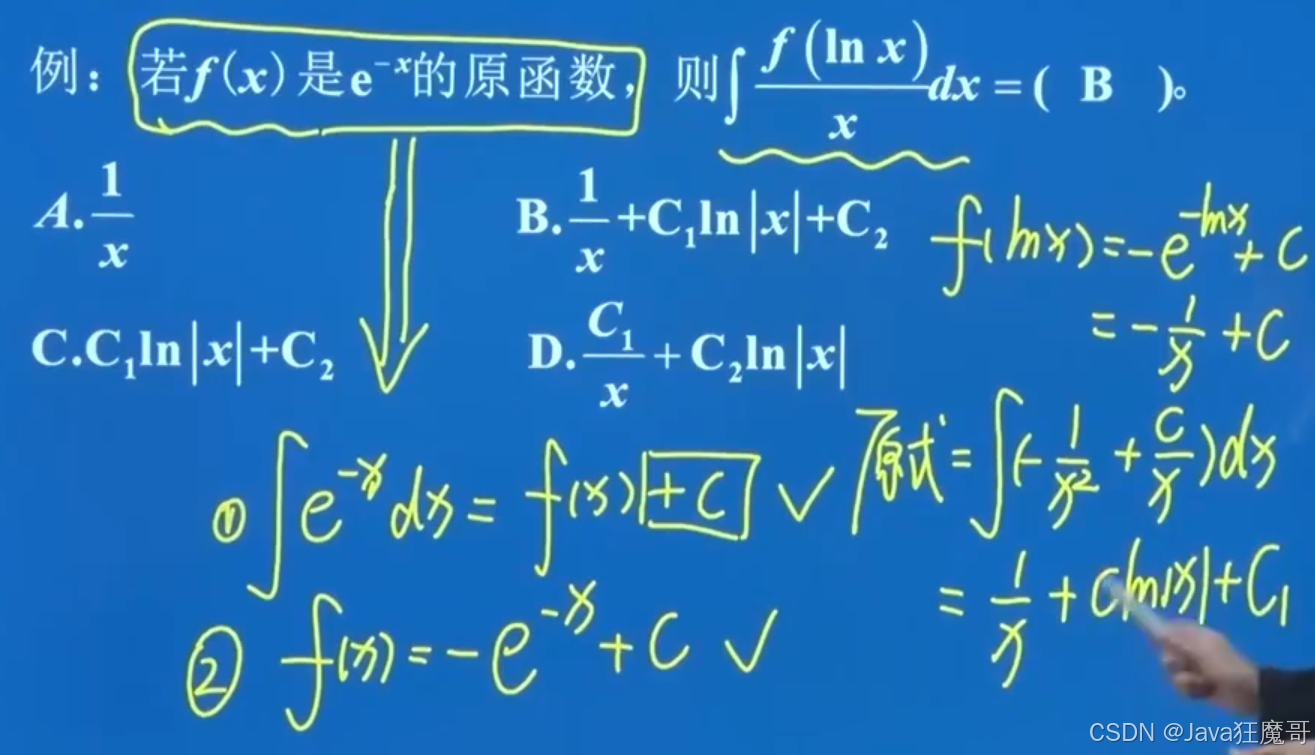 例：若f(x)是e⁻ˣ的原函数，则∫f(ln x)/x dx=( B )。
A. 1/x
B. 1/x+C₁ln|x|+C₂
C.C₁ln|x|+C₂
D. C₁/x + C₂ln|x|
f(lnx)=-e^(-lnx)+C
=-1/x+C
① ∫e⁻ˣdx=f(x)+C ✓
② f(x)=-e⁻ˣ+C ✓
原式=∫(-1/x²+C/x)dx
=1/x+Cln|x|+C₁
CSDN @Java狂魔哥